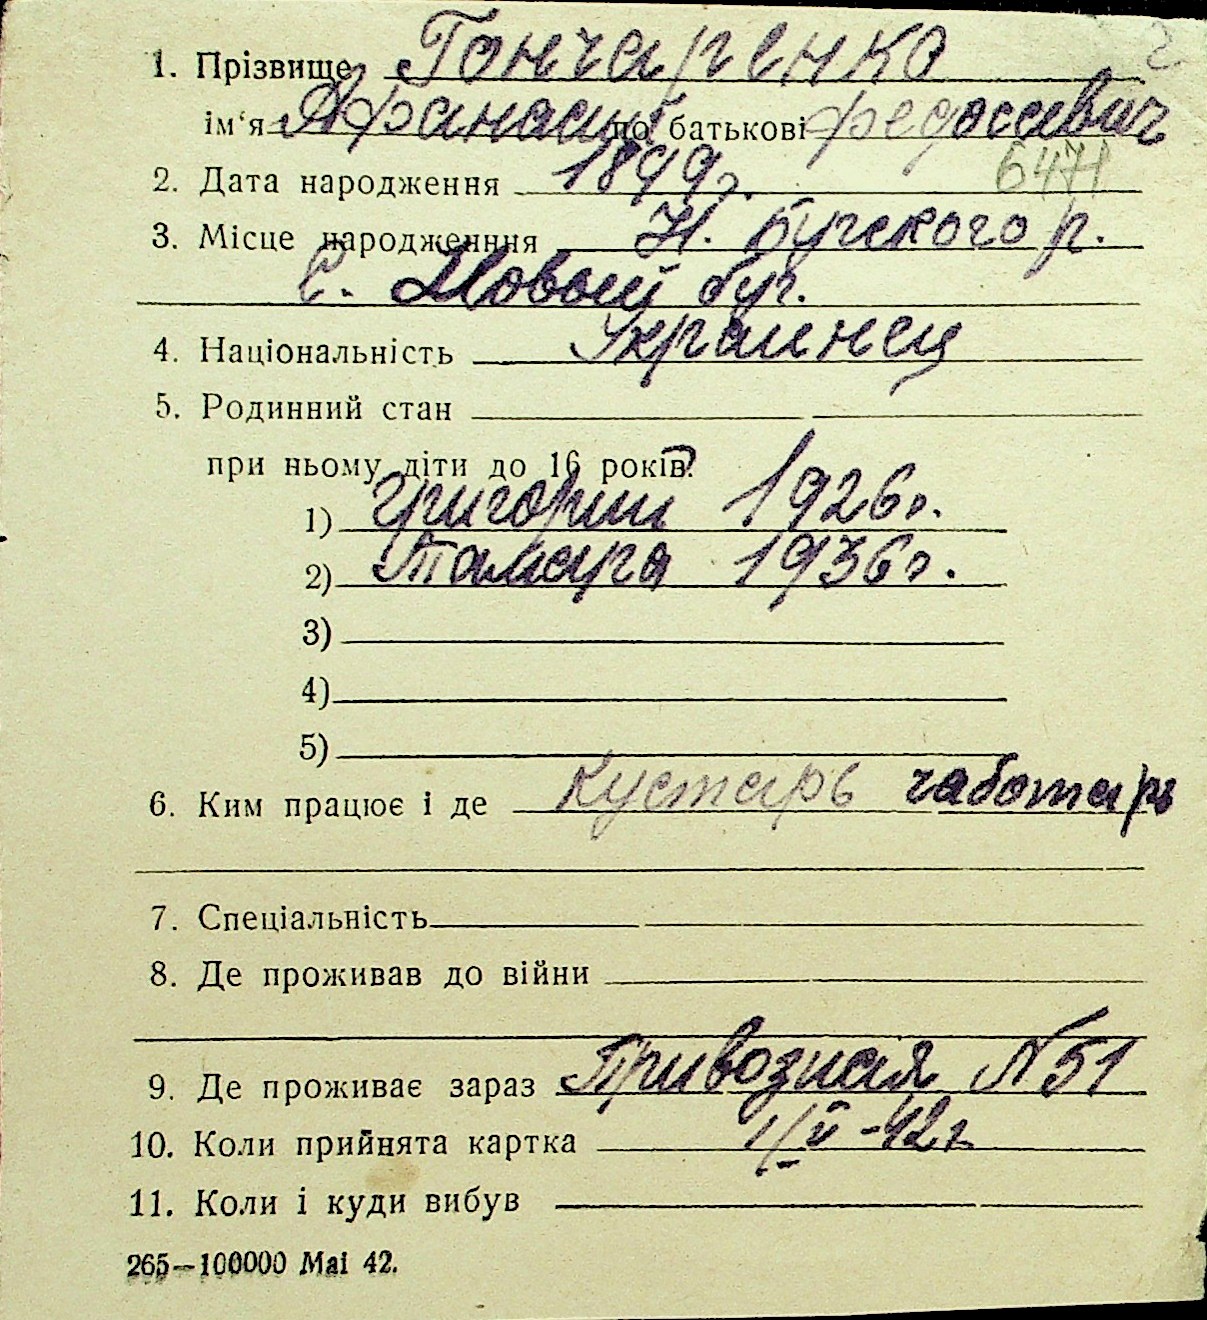 1. Прізвище Гончаренко
ім'я Афанасий по батькові Федосеевич
2. Дата народження 1899 г. 6471
3. Місце народженння Н. Бугского р.
С. Новый буг.
4. Національність Украинец
5. Родинний стан
при ньому діти до 16 років:
1) Григорий 1926 г.
2) Тамара 1936 г.
3)
4)
5)
6. Ким працює і де Кустарь чаботарь
7. Спеціальність
8. Де проживав до війни
9. Де проживає зараз Привозная №51
10. Коли прийнята картка 1/V-42 г.
11. Коли і куди вибув
265—100000 Mai 42.